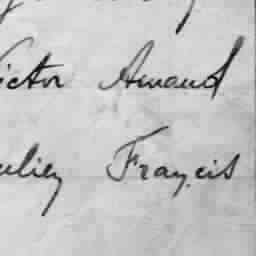 ictor Amand
uliez Francis